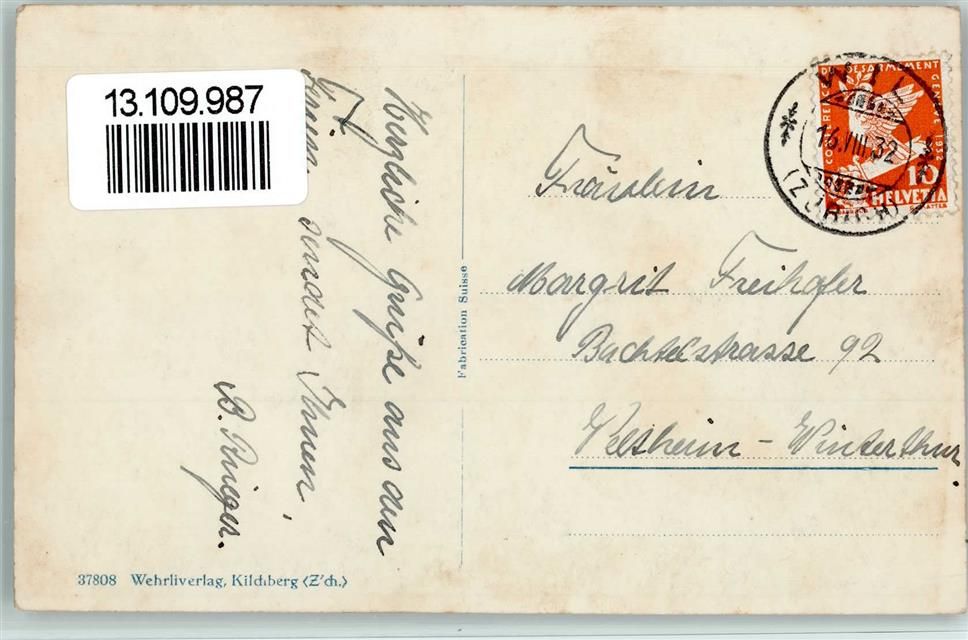 13.109.987
Herzliche Grüße aus den
sendet Ihnen,
B.
Fabrication Suisse
37808 Wehrliverlag, Kilchberg (Z'ch.)
CONFERENCE DU DESARMEMENT GENEVE 1932
10
HELVETIA
WIL
16.VIII.32
(ZÜRICH)
Fräulein
Margrit Freihofer
Bachtelstrasse 92
Veltheim - Winterthur.